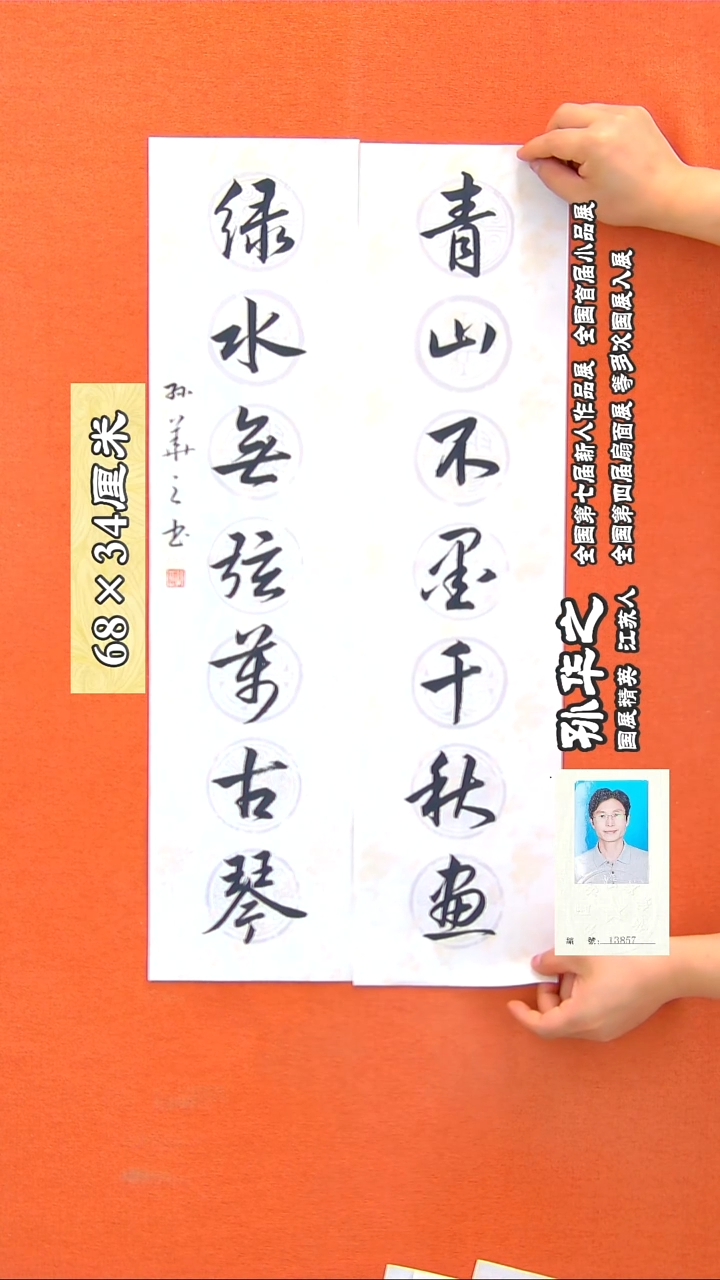 青山不墨千秋画
绿水無弦万古琴
孙華之书
68×34厘米
全国第七届新人作品展 全国首届小品展
全国第四届扇面展 等多次国展入展
孙华之
国展精英 江苏人
编 號: 13857